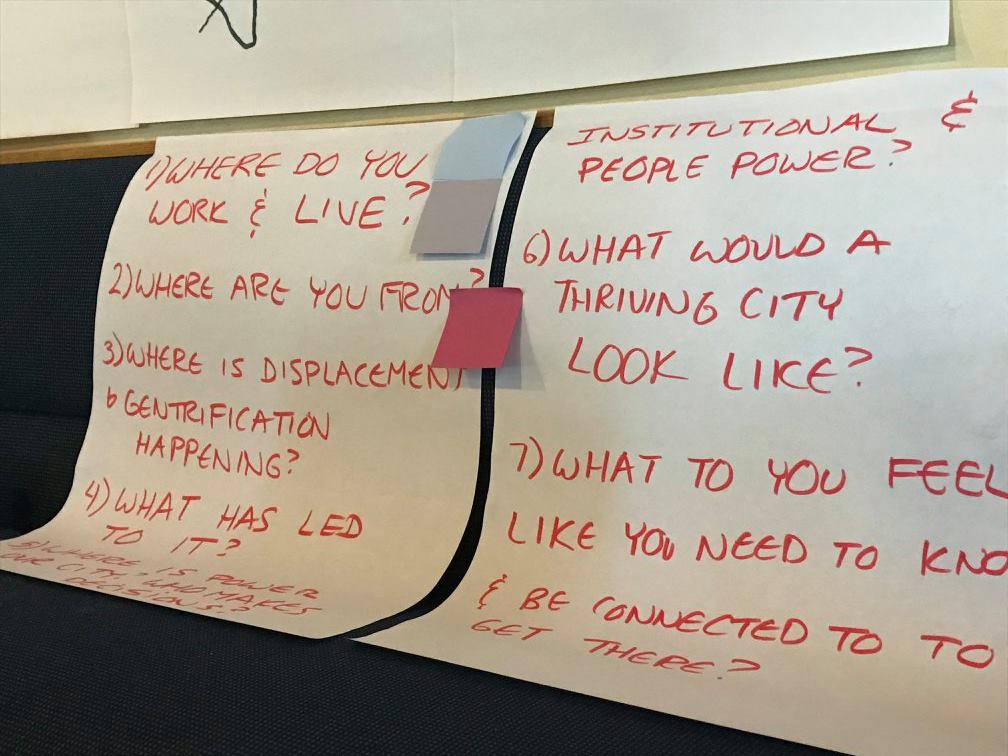 1) WHERE DO YOU
WORK & LIVE?
2) WHERE ARE YOU FROM?
3) WHERE IS DISPLACEMENT
& GENTRIFICATION
HAPPENING?
4) WHAT HAS LED
TO IT?
5) WHERE IS POWER
IN UR CITY, WHO MAKES
DECISIONS?
INSTITUTIONAL &
PEOPLE POWER?
6) WHAT WOULD A
THRIVING CITY
LOOK LIKE?
7) WHAT TO YOU FEEL
LIKE YOU NEED TO KNO
& BE CONNECTED TO TO
GET THERE?